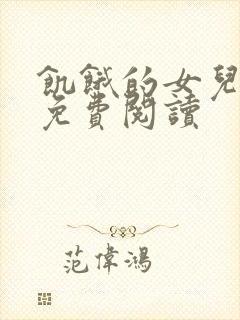 飢餓的女兒
免費閱讀
范偉鴻